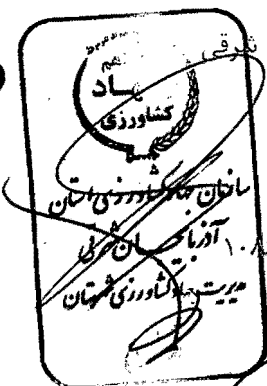 شرقی
جهاد
کشاورزی
سازمان جهاد کشاورزی استان
آذربایجان شرقی
مدیریت جهاد کشاورزی شهرستان